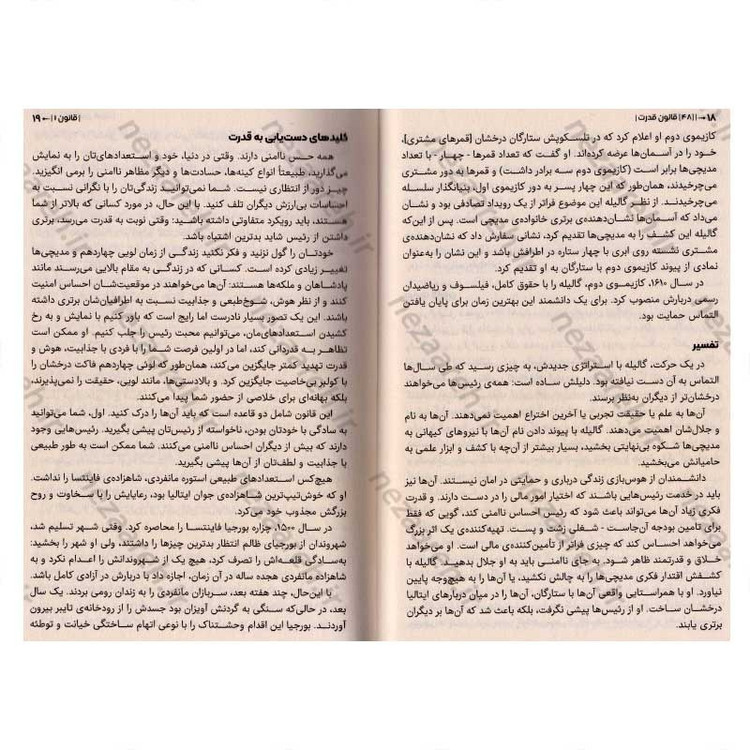 ۱۸ ←|۴۸| قانون قدرت|
کازیموی دوم او اعلام کرد که در تلسکوپش ستارگان درخشان [قمرهای مشتری]،
خود را در آسمان‌ها عرضه کرده‌اند. او گفت که تعداد قمرها - چهار - با تعداد
مدیچی‌ها برابر است (کازیموی دوم سه برادر داشت) و قمرها به دور مشتری
می‌چرخیدند، همان‌طور که این چهار پسر به دور کازیموی اول، بنیانگذار سلسله
می‌چرخیدند. از نظر گالیله این موضوع فراتر از یک رویداد تصادفی بود و نشان
می‌داد که آسمان‌ها نشان‌دهنده‌ی برتری خانواده‌ی مدیچی است. پس از این‌که
گالیله این کشف را به مدیچی‌ها تقدیم کرد، نشانی سفارش داد که نشان‌دهنده‌ی
مشتری نشسته روی ابری با چهار ستاره در اطرافش باشد و این نشان را به‌عنوان
نمادی از پیوند کازیموی دوم با ستارگان به او تقدیم کرد.
در سال ۱۶۱۰، کازیموی دوم، گالیله را با حقوق کامل، فیلسوف و ریاضیدان
رسمی دربارش منصوب کرد. برای یک دانشمند این بهترین زمان برای پایان یافتن
التماس حمایت بود.
تفسیر
در یک حرکت، گالیله با استراتژی جدیدش، به چیزی رسید که طی سال‌ها
التماس به آن دست نیافته بود. دلیلش ساده است: همه‌ی رئیس‌ها می‌خواهند
درخشان‌تر از دیگران به‌نظر برسند.
آن‌ها به علم یا حقیقت تجربی یا آخرین اختراع اهمیت نمی‌دهند. آن‌ها به نام
و جلال‌شان اهمیت می‌دهند. گالیله با پیوند دادن نام آن‌ها با نیروهای کیهانی به
مدیچی‌ها شکوه بی‌نهایتی بخشید، بسیار بیشتر از آن‌چه با کشف و ابزار علمی به
حامیانش می‌بخشید.
دانشمندان از هوس‌بازی زندگی درباری و حمایتی در امان نیستند. آن‌ها نیز
باید در خدمت رئیس‌هایی باشند که اختیار امور مالی را در دست دارند. و قدرت
فکری زیاد آن‌ها می‌تواند باعث شود که رئیس احساس ناامنی کند، گویی که فقط
برای تامین بودجه آن‌جاست - شغلی زشت و پست. تهیه‌کننده‌ی یک اثر بزرگ
می‌خواهد احساس کند که چیزی فراتر از تأمین‌کننده‌ی مالی است. او می‌خواهد
خلاق و قدرتمند ظاهر شود. به جای ناامنی باید به او جلال بدهید. گالیله با
کشفش اقتدار فکری مدیچی‌ها را به چالش نکشید، یا آن‌ها را به هیچ‌وجه پایین
نیاورد. او با همراستایی واقعی آن‌ها با ستارگان، آن‌ها را در میان دربارهای ایتالیا
درخشان ساخت. او از رئیس‌ها پیشی نگرفت، بلکه باعث شد که آن‌ها بر دیگران
برتری یابند.
|قانون ۱|← ۱۹
کلیدهای دست‌یابی به قدرت
همه حس ناامنی دارند. وقتی در دنیا، خود و استعدادهای‌تان را به نمایش
می‌گذارید، طبیعتاً انواع کینه‌ها، حسادت‌ها و دیگر مظاهر ناامنی را برمی انگیزید.
چیز دور از انتظاری نیست. شما نمی‌توانید زندگی‌تان را با نگرانی نسبت به
احساسات بی‌ارزش دیگران تلف کنید. با این حال، در مورد کسانی که بالاتر از شما
هستند، باید رویکرد متفاوتی داشته باشید: وقتی نوبت به قدرت می‌رسد، برتری
داشتن از رئیس شاید بدترین اشتباه باشد.
خودتان را گول نزنید و فکر نکنید زندگی از زمان لویی چهاردهم و مدیچی‌ها
تغییر زیادی کرده است. کسانی که در زندگی به مقام بالایی می‌رسند مانند
پادشاهان و ملکه‌ها هستند: آن‌ها می‌خواهند در موقعیت‌شان احساس امنیت
کنند و از نظر هوش، شوخ‌طبعی و جذابیت نسبت به اطرافیان‌شان برتری داشته
باشند. این یک تصور بسیار نادرست اما رایج است که باور کنیم با نمایش و به رخ
کشیدن استعدادهای‌مان، می‌توانیم محبت رئیس را جلب کنیم. او ممکن است
تظاهر به قدردانی کند، اما در اولین فرصت شما را با فردی با جذابیت، هوش و
قدرت تهدید کمتر جایگزین می‌کند، همان‌طور که لوئی چهاردهم فاکت درخشان را
با کولبر بی‌خاصیت جایگزین کرد. و بالادستی‌ها، مانند لویی، حقیقت را نمی‌پذیرند،
بلکه بهانه‌ای برای خلاصی از حضور شما پیدا می‌کنند.
این قانون شامل دو قاعده است که باید آن‌ها را درک کنید. اول، شما می‌توانید
به سادگی با خودتان بودن، ناخواسته از رئیس‌تان پیشی بگیرید. رئیس‌هایی وجود
دارند که بیش از دیگران احساس ناامنی می‌کنند. شما ممکن است به طور طبیعی
با جذابیت و لطف‌تان از آن‌ها پیشی بگیرید.
هیچ‌کس استعدادهای طبیعی استوره مانفردی، شاهزاده‌ی فاینتسا را نداشت.
او که خوش‌تیپ‌ترین شاهزاده‌ی جوان ایتالیا بود، رعایایش را با سخاوت و روح
بزرگش مجذوب خود می‌کرد.
در سال ۱۵۰۰، چزاره بورجیا فاینتسا را محاصره کرد. وقتی شهر تسلیم شد،
شهروندان از بورجیای ظالم انتظار بدترین چیزها را داشتند، ولی او شهر را بخشید:
به‌سادگی قلعه‌اش را تصرف کرد، هیچ یک از شهروندانش را اعدام نکرد و به
شاهزاده مانفردی هجده ساله در آن زمان، اجازه داد با دربارش در آزادی کامل باشد.
با این‌حال، چند هفته بعد، سربازان مانفردی را به زندان رومی بردند. یک سال
بعد، در حالی‌که سنگی به گردنش آویزان بود جسدش را از رودخانه‌ی تایبر بیرون
آوردند. بورجیا این اقدام وحشتناک را با نوعی اتهام ساختگی خیانت و توطئه
nezaareh.ir